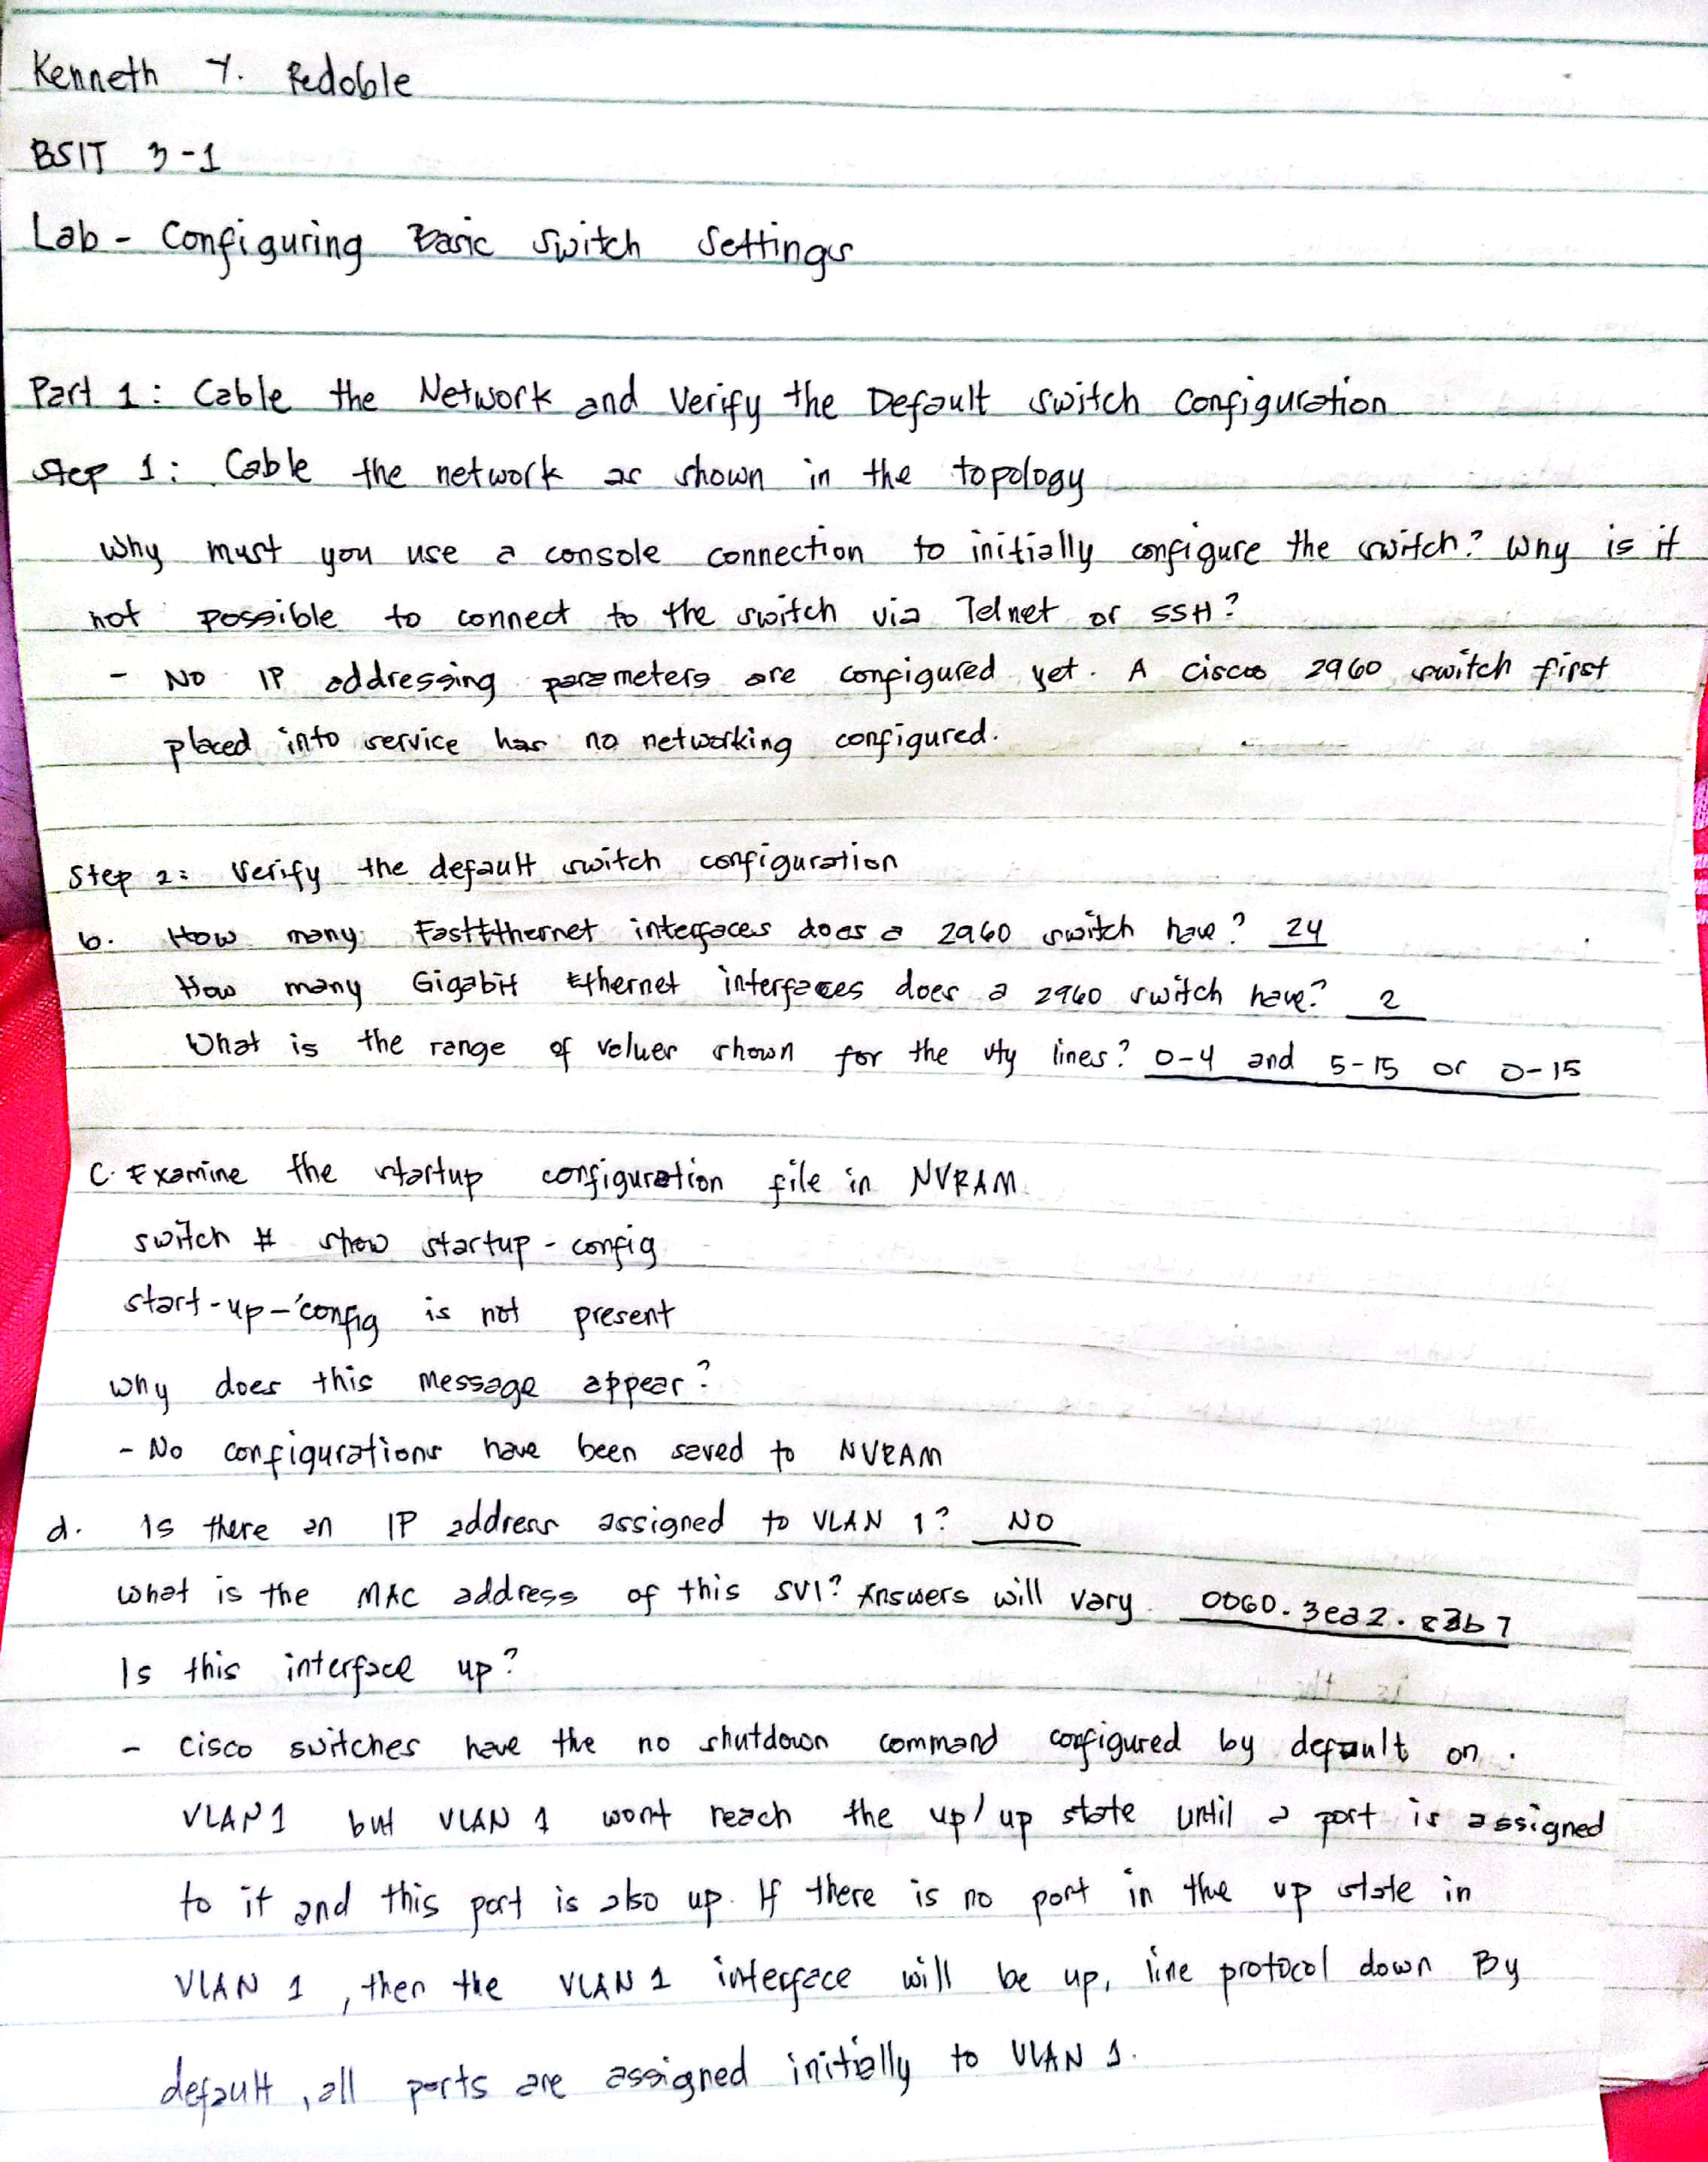 Kenneth Y. Redoble
BSIT 3-1
Lab - Configuring Basic Switch Settings
Part 1: Cable the Network and Verify the Default Switch Configuration
Step 1: Cable the network as shown in the topology
Why must you use a console connection to initially configure the switch? Why is it
not possible to connect to the switch via Telnet or SSH?
- No IP addressing parameters are configured yet. A Cisco 2960 switch first
placed into service has no networking configured.
Step 2: Verify the default switch configuration
b. How many FastEthernet interfaces does a 2960 switch have? 24
How many Gigabit Ethernet interfaces does a 2960 switch have? 2
What is the range of values shown for the vty lines? 0-4 and 5-15 or 0-15
C. Examine the startup configuration file in NVRAM
switch # show startup - config
start-up-config is not present
Why does this message appear?
- No configurations have been saved to NVRAM
d. Is there an IP address assigned to VLAN 1? NO
What is the MAC address of this SVI? Answers will vary. 0060.3ea2.83b7
Is this interface up?
- Cisco switches have the no shutdown command configured by default on.
VLAN 1 but VLAN 1 wont reach the up/up state until a port is assigned
to it and this port is also up. If there is no port in the up state in
VLAN 1, then the VLAN 1 interface will be up, line protocol down By
default, all ports are assigned initially to VLAN 1.